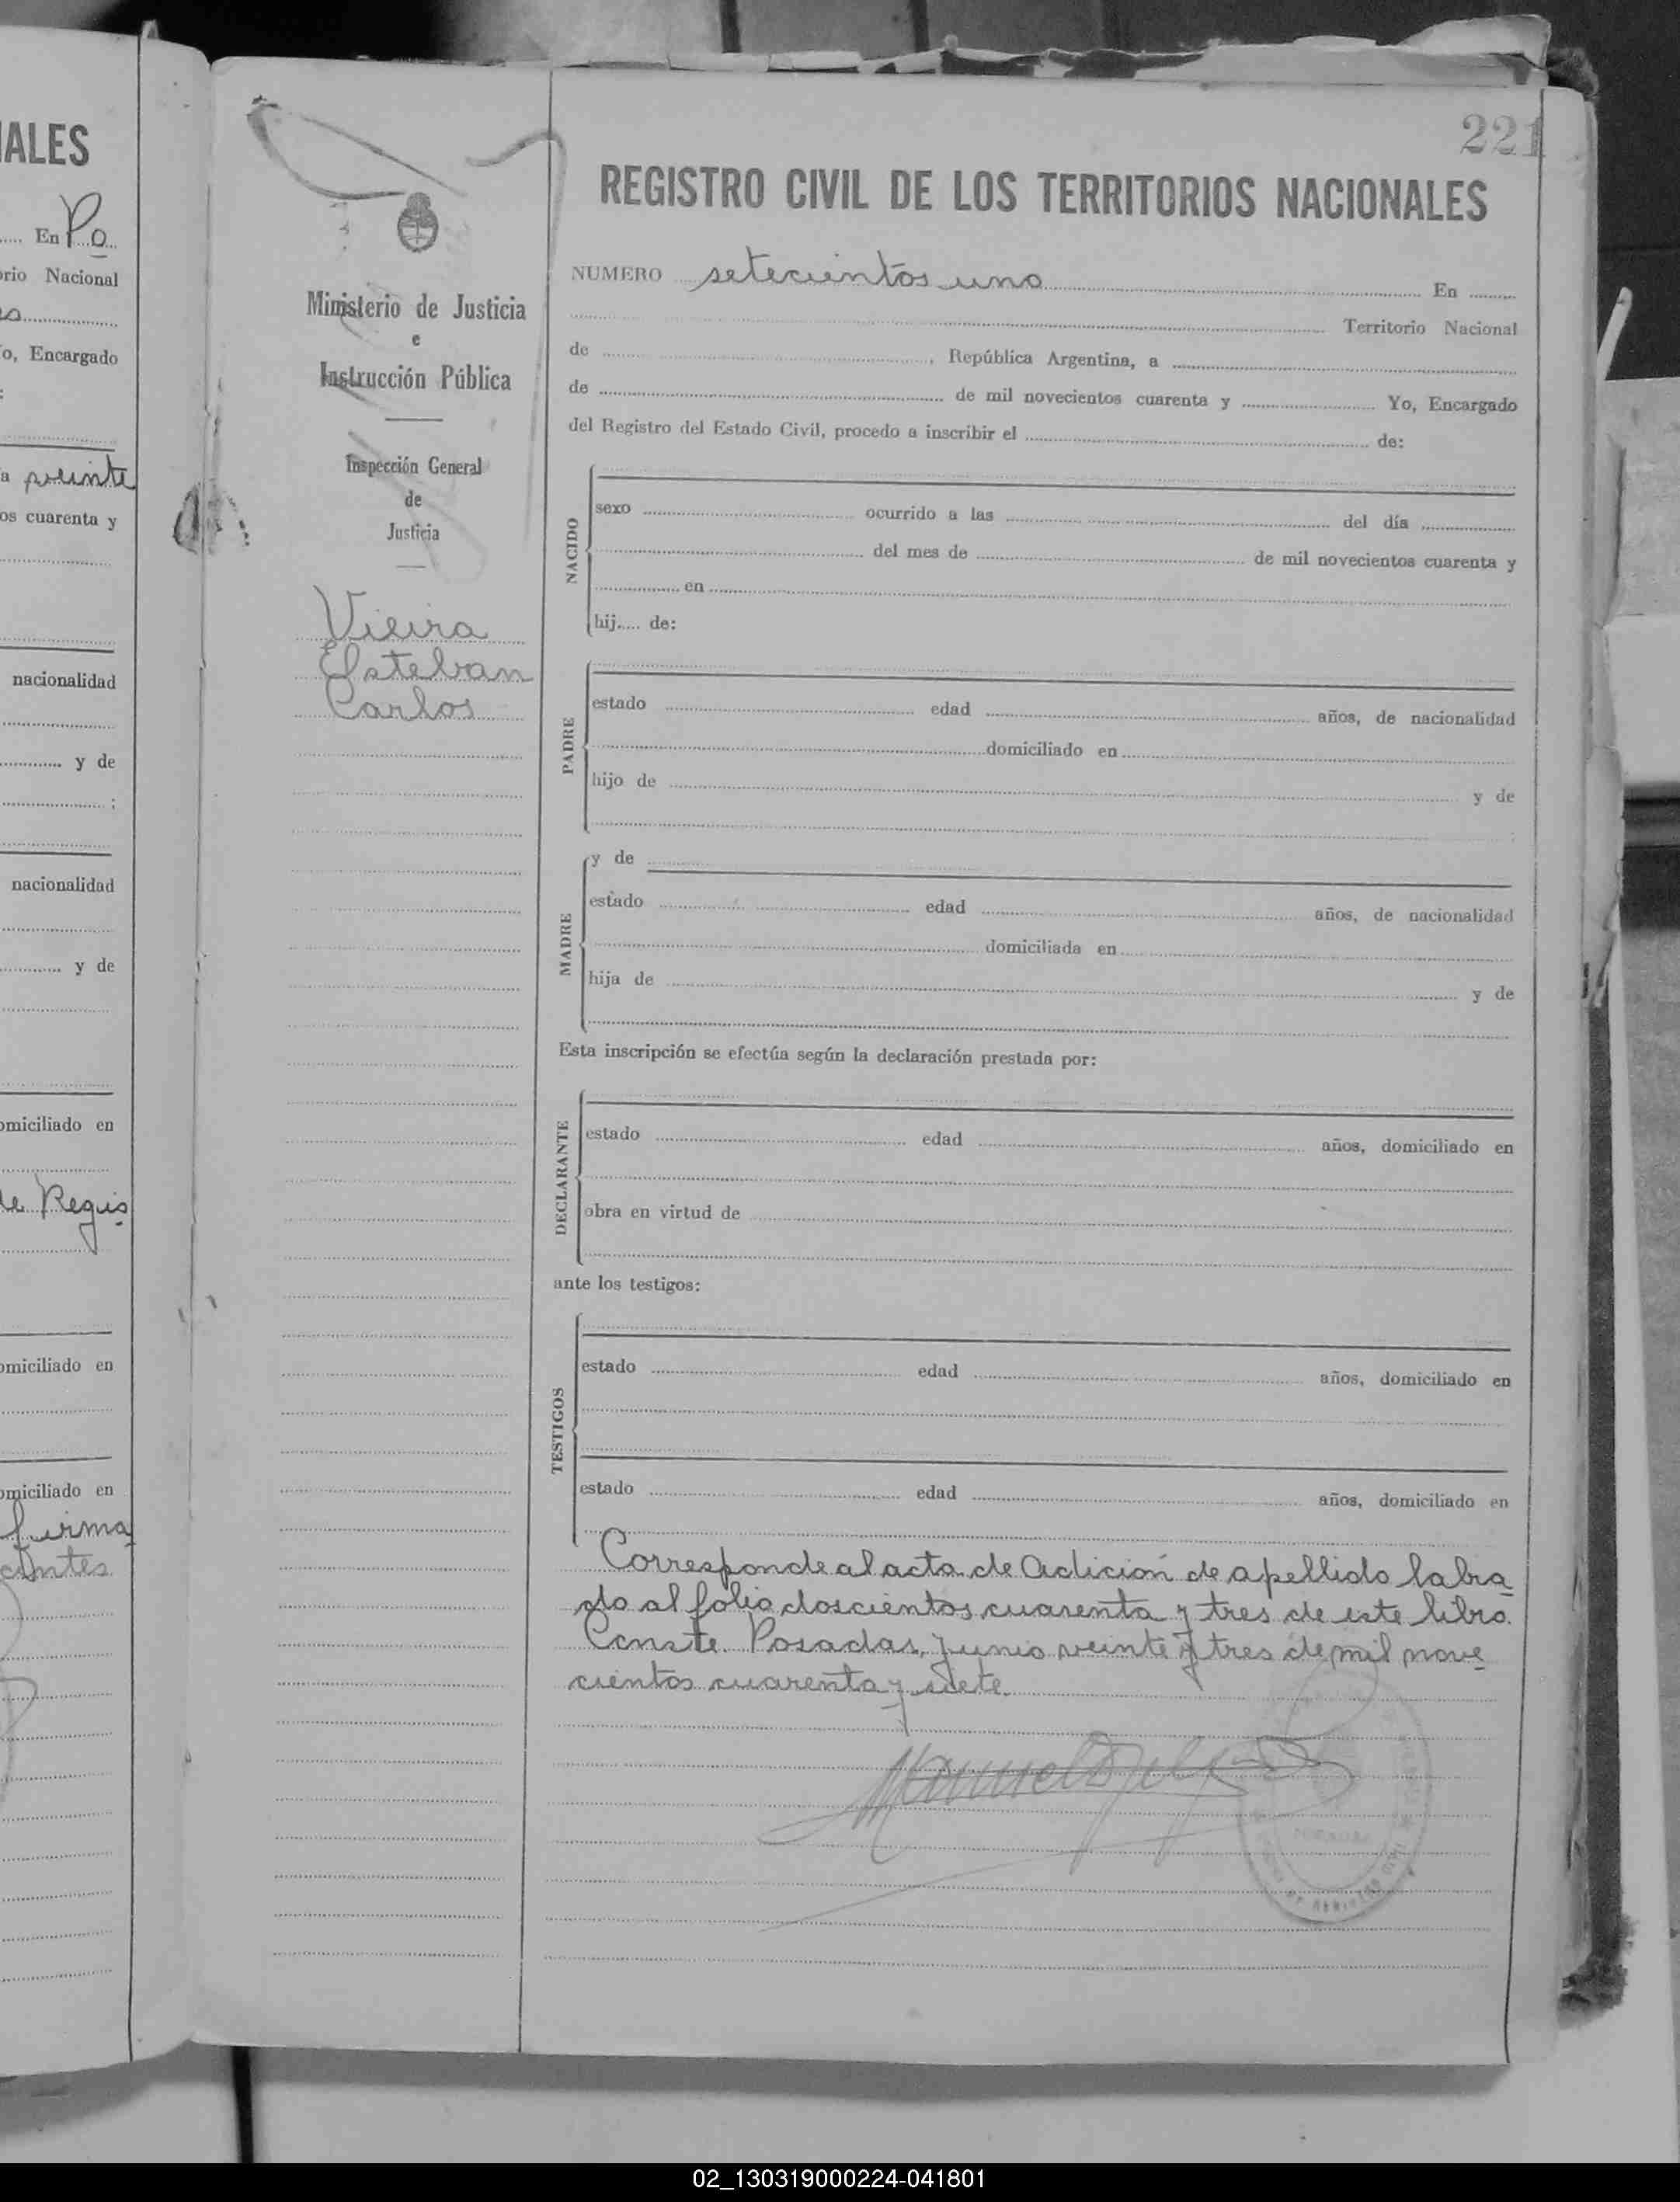 IALES
En Po
rio Nacional
o, Encargado
a veinte
os cuarenta y
nacionalidad
y de
;
nacionalidad
y de
omiciliado en
de Regis
omiciliado en
omiciliado en
firma
221
Ministerio de Justicia
e
Instrucción Pública
Inspección General
de
Justicia
Vieira
Esteban
Carlos
REGISTRO CIVIL DE LOS TERRITORIOS NACIONALES
NUMERO setecientos uno En
Territorio Nacional
de , República Argentina, a
de de mil novecientos cuarenta y Yo, Encargado
del Registro del Estado Civil, procedo a inscribir el de:
NACIDO
sexo ocurrido a las del día
del mes de de mil novecientos cuarenta y
en
hij.... de:
PADRE
estado edad años, de nacionalidad
domiciliado en
hijo de y de
MADRE
y de
estado edad años, de nacionalidad
domiciliada en
hija de y de
Esta inscripción se efectúa según la declaración prestada por:
DECLARANTE
estado edad años, domiciliado en
obra en virtud de
ante los testigos:
TESTIGOS
estado edad años, domiciliado en
estado edad años, domiciliado en
Corresponde al acta de Adición de apellido labra
do al folio doscientos cuarenta y tres de este libro.
Conste. Posadas, junio veinte y tres de mil nove
cientos cuarenta y siete.
02_130319000224-041801